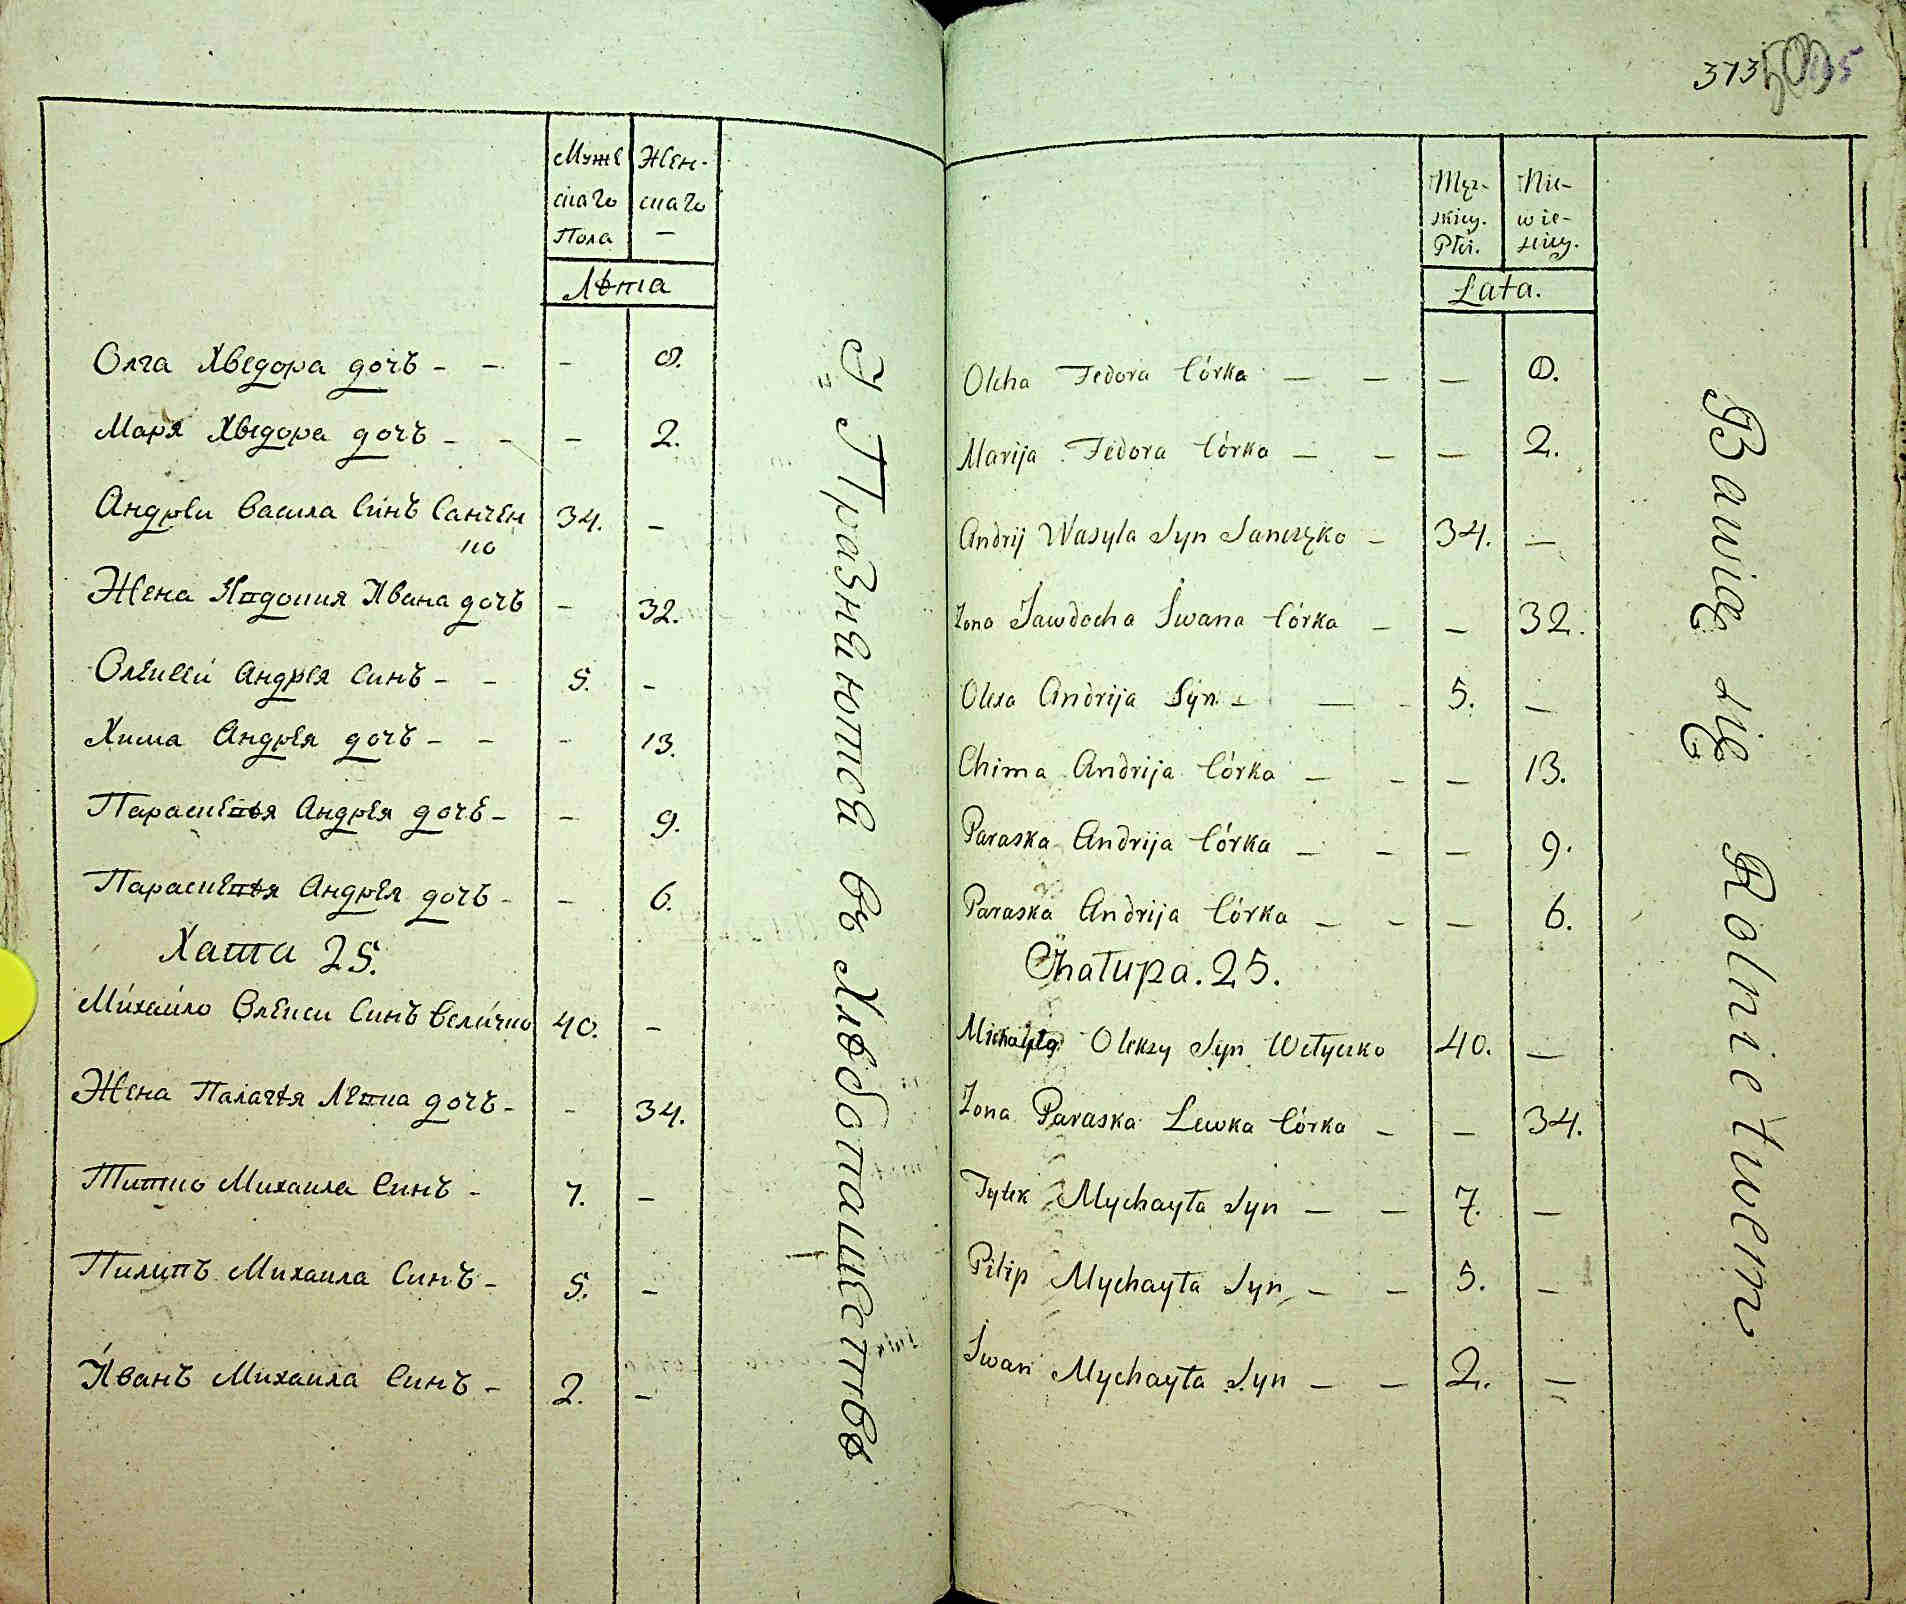 373
Муже Жен-
скаго скаго
Пола —
Лѣта
Олга Хведора дочъ - - - 0.
Маря Хведора дочъ - - - 2.
Андрѣи Васила Синъ Санчен 34. -
ко
Жена Явдокия Ивана дочъ - 32.
Олексѣй Андрѣя Синъ - - 5. -
Хима Андрѣя дочъ - - - 13.
Параскевья Андрѣя дочъ - - 9.
Параскевья Андрѣя дочъ - - 6.
Хата 25.
Михайло Олекси Синъ Величко 40. -
Жена Палагѣя Левка дочъ - - 34.
Титко Михаила Синъ - 7. -
Пилипъ Михаила Синъ - 5. -
Иванъ Михаила Синъ - 2. -
Упражняются въ Хлѣбопашествѣ
Męz- Nie-
skiey. wie-
Płci. sciey.
Lata.
Olcha Fedora Córka — — — 0.
Marija Fedora Córka — — — 2.
Andrij Wasyla Syn Sanczko — 34. —
Zona Jawdocha Iwana Córka — — 32.
Olexa Andrija Syn — — - 5. —
Chima Andrija Córka — — — 13.
Paraska Andrija Córka — — — 9.
Paraska Andrija Córka — — — 6.
Chałupa. 25.
Michayło Olexy Syn Wełyczko 40. —
Zona Paraska Lewka Córka — — 34.
Tytek Mychayła Syn — — 7. —
Pilip Mychayła Syn — — 5. —
Iwan Mychayła Syn — — 2. —
Bawią się Rolnictwem